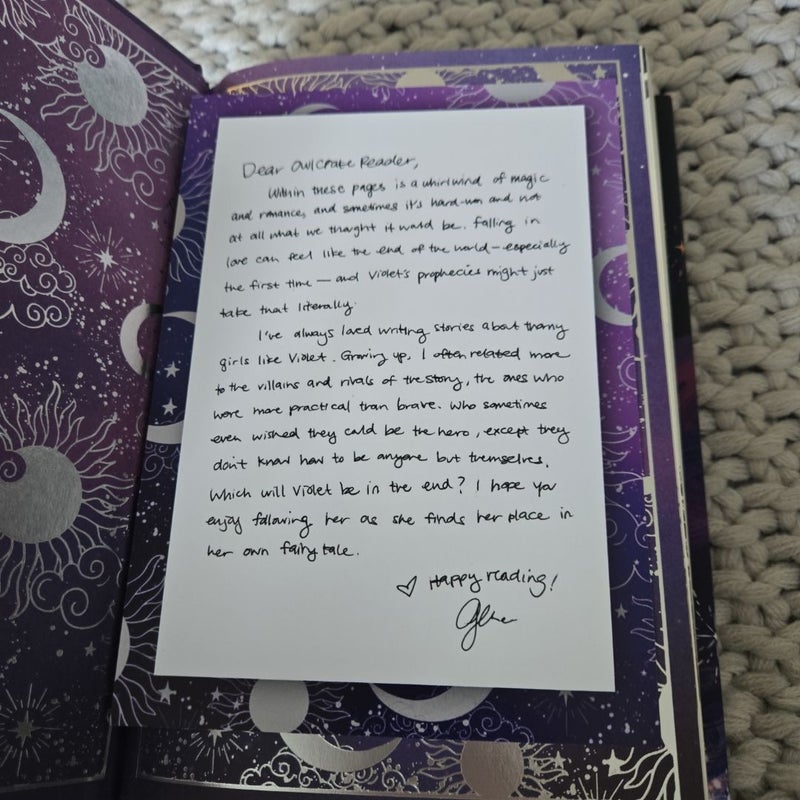 Dear OwlCrate Reader,
Within these pages is a whirlwind of magic
and romance, and sometimes it's hard-won and not
at all what we thought it would be. Falling in
love can feel like the end of the world—especially
the first time — and Violet's prophecies might just
take that literally.
I've always loved writing stories about thorny
girls like Violet. Growing up, I often related more
to the villains and rivals of the story, the ones who
were more practical than brave. Who sometimes
even wished they could be the hero, except they
don't know how to be anyone but themselves.
Which will Violet be in the end? I hope you
enjoy following her as she finds her place in
her own fairy tale.
♡ Happy reading!